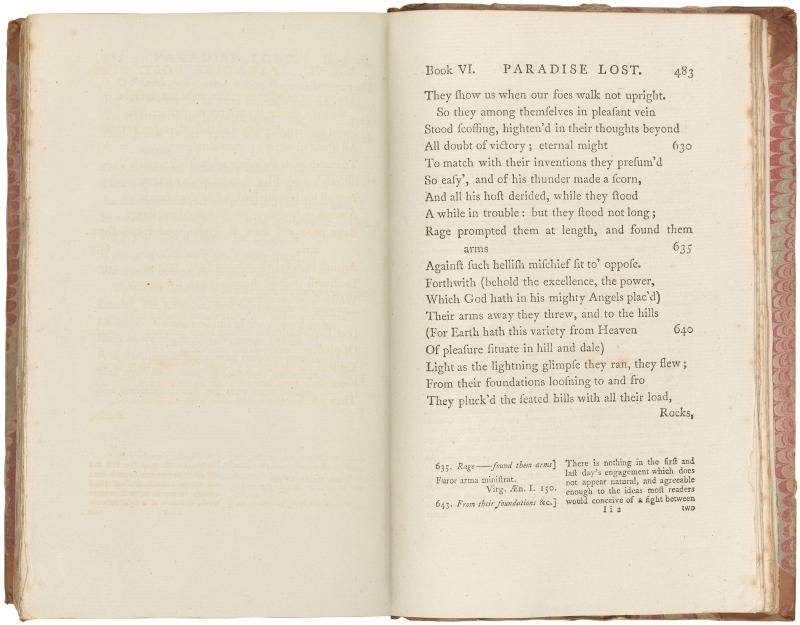 Book VI. PARADISE LOST. 483
They ſhow us when our foes walk not upright.
So they among themſelves in pleaſant vein
Stood ſcoffing, highten'd in their thoughts beyond
All doubt of victory; eternal might 630
To match with their inventions they preſum'd
So eaſy', and of his thunder made a ſcorn,
And all his hoſt derided, while they ſtood
A while in trouble: but they ſtood not long;
Rage prompted them at length, and found them
arms 635
Againſt ſuch helliſh miſchief fit to' oppoſe.
Forthwith (behold the excellence, the power,
Which God hath in his mighty Angels plac'd)
Their arms away they threw, and to the hills
(For Earth hath this variety from Heaven 640
Of pleaſure ſituate in hill and dale)
Light as the lightning glimpſe they ran, they flew;
From their foundations looſning to and fro
They pluck'd the ſeated hills with all their load,
Rocks,
635. Rage—found them arms]
Furor arma miniſtrat.
Virg. Æn. I. 150.
643. From their foundations &c.]
There is nothing in the firſt and
laſt day's engagement which does
not appear natural, and agreeable
enough to the ideas moſt readers
would conceive of a fight between
I i 2 two